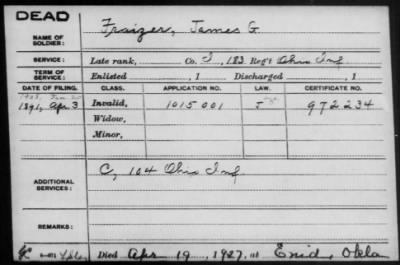 DEAD
NAME OF SOLDIER: Fraizer, James G.
SERVICE: Late rank, Co. I, 183 Reg't Ohio Inf
TERM OF SERVICE: Enlisted , 1 Discharged , 1
DATE OF FILING. CLASS. APPLICATION NO. LAW. CERTIFICATE NO.
1891, Apr. 3 Invalid, 1015001 J 972234
Widow,
Minor,
ADDITIONAL SERVICES: C, 104 Ohio Inf
REMARKS:
Died Apr 19, 1927, at Enid, Okla